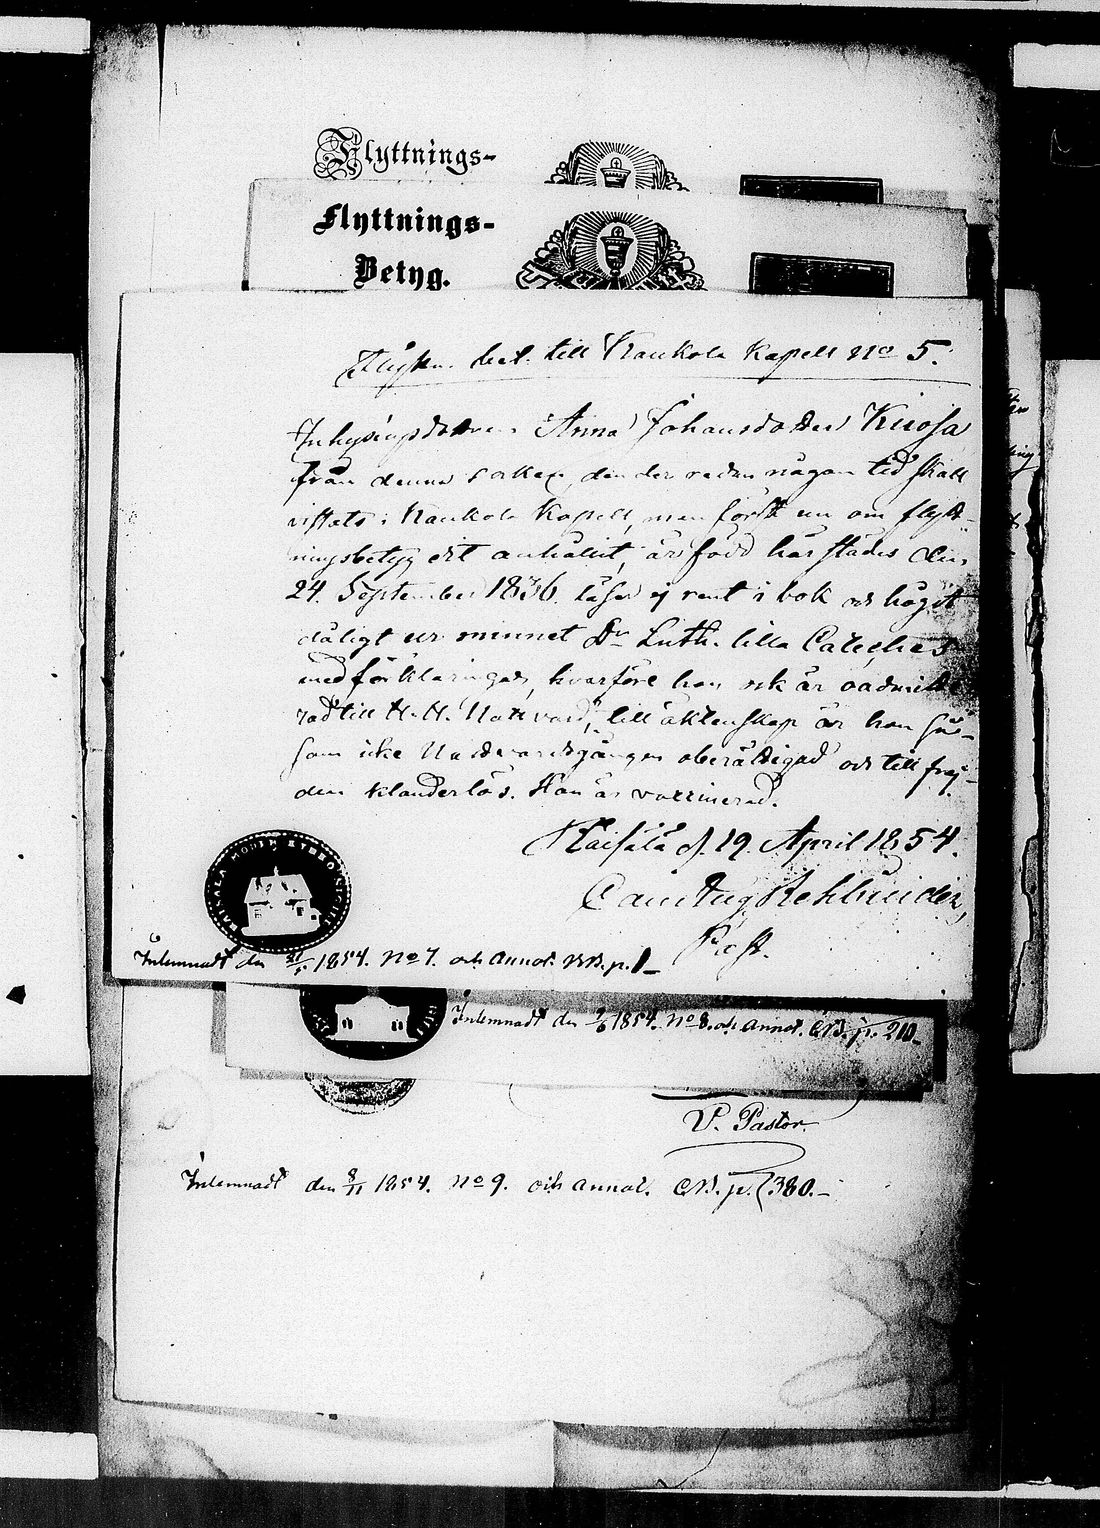 Flyttnings-
Flyttnings-
Betyg.
Flyttn. bet. till Kaukola Kapell No 5.
Inhysingsdottren Anna Johansdotter Kuosa
från denna socken, den der redan någon tid skall
vistats i Kaukola Kapell, men först nu om flytt-
ningsbetyg sitt anhållit, är född härstädes den
24. September 1836. läser ej rent i bok och högst
dåligt ur minnet Dr. Luth. lilla Cateches
med förklaringar, hvarföre hon ock är oadmitte-
rad till H. H. Nattvard, till äktenskap är hon så-
som icke Nattvardsgången oberättigad och till frej-
den klanderlös. Hon är vaccinerad.
Räisälä d. 19. April 1854.
Rehbinder,
Past.
Inlemnadt den 1854. No 7. och annot. p. 1-
Inlemnadt den 2/6 1854. No 8. och annot. CB. p. 210-
V. Pastor.
Inlemnadt den 8/11 1854. No 9. och annot. CB. p. 380.-